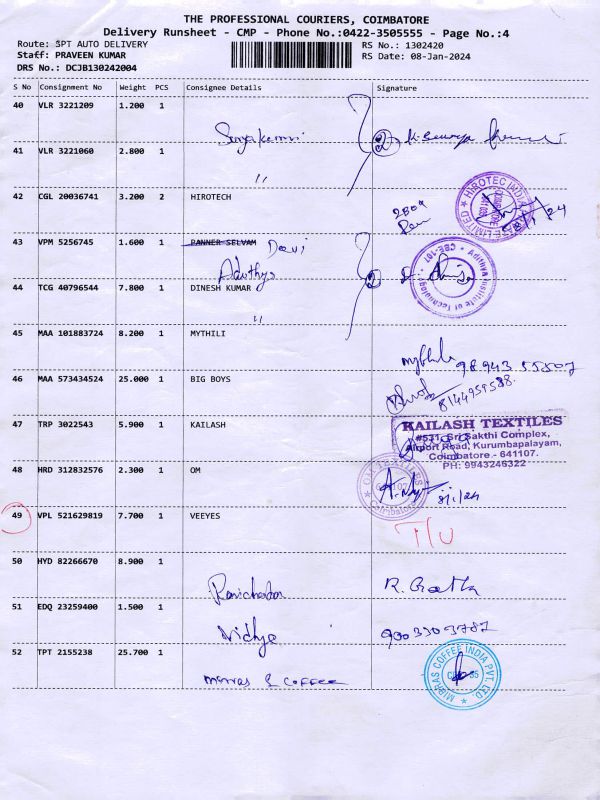 THE PROFESSIONAL COURIERS, COIMBATORE
Delivery Runsheet - CMP - Phone No.:0422-3505555 - Page No.:4
Route: 3PT AUTO DELIVERY
RS No.: 1302420
Staff: PRAVEEN KUMAR
RS Date: 08-Jan-2024
DRS No.: DCJB130242004
S No Consignment No Weight PCS Consignee Details Signature
40 VLR 3221209 1.200 1
41 VLR 3221060 2.800 1
"
42 CGL 20036741 3.200 2 HIROTECH
HIROTEC INDIA PRIVATE LIMITED
43 VPM 5256745 1.600 1 PANNER SELVAM Devi
Adithya
Adithya Institute of Technology CBE-107
44 TCG 40796544 7.800 1 DINESH KUMAR
"
45 MAA 101883724 8.200 1 MYTHILI
Mythili 98943 55807
46 MAA 573434524 25.000 1 BIG BOYS
8144959588.
47 TRP 3022543 5.900 1 KAILASH
KAILASH TEXTILES
#531, Sri Sakthi Complex,
Airport Road, Kurumbapalayam,
Coimbatore - 641107.
PH: 9943246322
48 HRD 312832576 2.300 1 OM
OM TEXTILES
Coimbatore
8/1/24
49 VPL 521629819 7.700 1 VEEYES
T/U
50 HYD 82266670 8.900 1
Ravichandran R. Geetha
51 EDQ 23259400 1.500 1
Vidhya 9003309787
52 TPT 2155238 25.700 1
COFFEE INDIA PVT. LTD.
& COFFEE